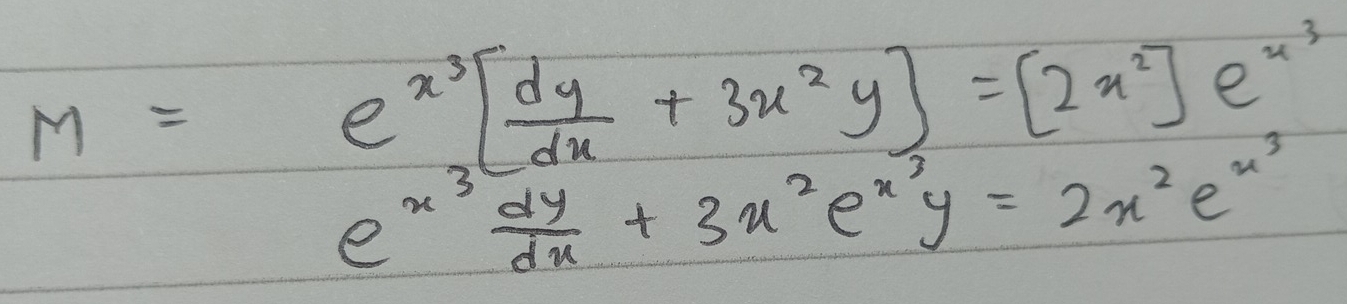 M = e^{x^3} [dy/dx + 3x^2 y] = [2x^2] e^{x^3}
e^{x^3} dy/dx + 3x^2 e^{x^3} y = 2x^2 e^{x^3}